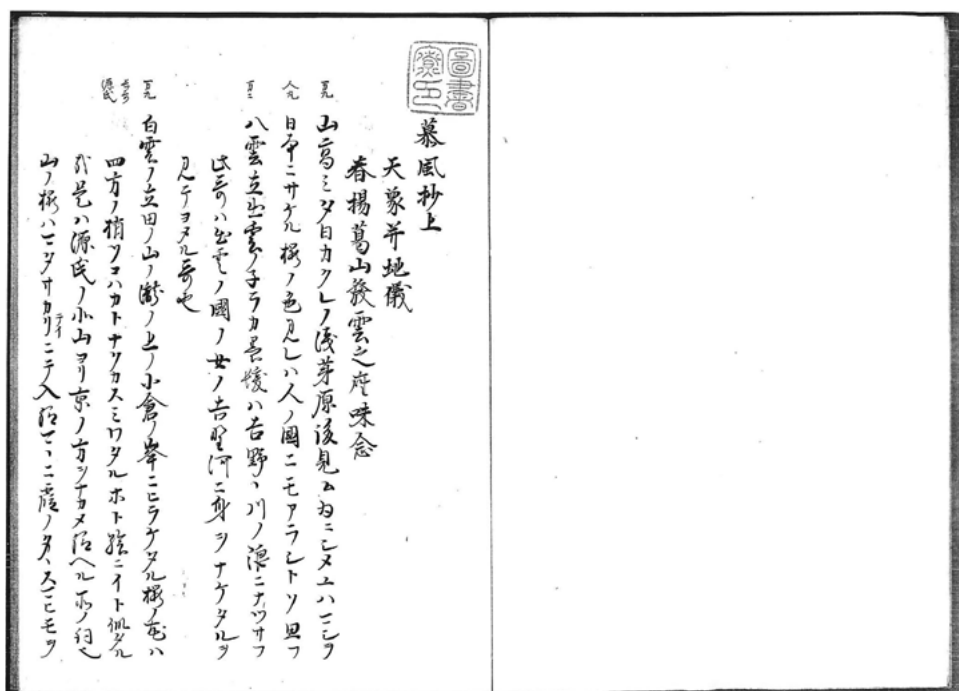 圖書寮印
慕風抄上
天象并地儀
春楊葛山發雲之座味念
万九 山高ミタ日カクレノ浅茅原後見ム為ニシメユハマシヲ
人丸 日本ニサケル桜ノ色見レハ人ノ國ニモアラシトソ思フ
万三 八雲立出雲ノ子ラカ黒髪ハ吉野ヽ川ノ澳ニナツサフ
此哥ハ出雲ノ國ノ女ノ吉野河ニ身ヲナケタルヲ
見テヨメル哥也
万九 白雲ノ立田ノ山ノ瀧ノ上ノ小倉ノ峯ニヒラケタル桜ノ花ハ
源氏 四方ノ梢ソコハカトナウカスミワタルホト絵ニイト似タル
哉是ハ源氏ノ小山ヨリ京ノ方ヲナカメ給ヘル所ノ詞也
山ノ桜ハマタサカリニテ入給マヽニ霞ノタヽスマヒモヲ